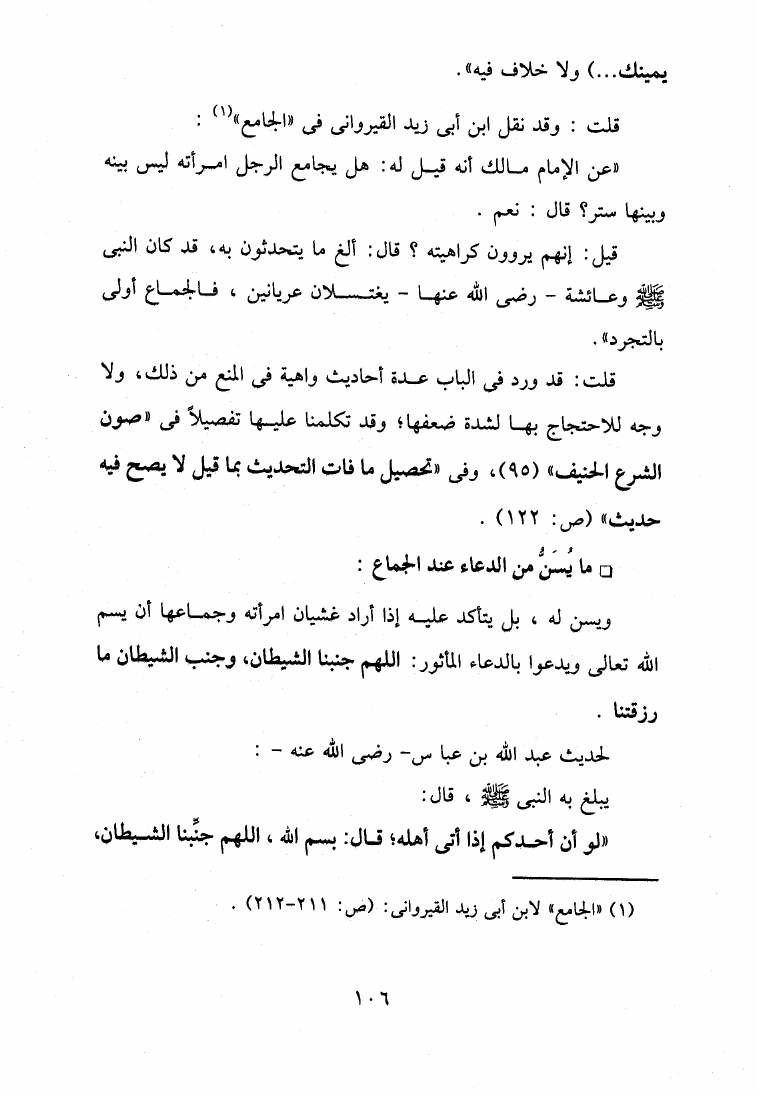 يمينك...) ولا خلاف فيه».
قلت : وقد نقل ابن أبى زيد القيروانى فى «الجامع»(١) :
«عن الإمام مالك أنه قيل له: هل يجامع الرجل امرأته ليس بينه
وبينها ستر؟ قال : نعم .
قيل: إنهم يروون كراهيته ؟ قال: ألغ ما يتحدثون به، قد كان النبى
ﷺ وعائشة - رضى الله عنها - يغتسلان عريانين ، فالجماع أولى
بالتجرد».
قلت: قد ورد فى الباب عدة أحاديث واهية فى المنع من ذلك، ولا
وجه للاحتجاج بها لشدة ضعفها؛ وقد تكلمنا عليها تفصيلاً فى «صون
الشرع الحنيف» (٩٥)، وفى «تحصيل ما فات التحديث بما قيل لا يصح فيه
حديث» (ص: ١٢٢) .
□ ما يُسَنُّ من الدعاء عند الجماع :
ويسن له ، بل يتأكد عليه إذا أراد غشيان امرأته وجماعها أن يسم
الله تعالى ويدعوا بالدعاء المأثور: اللهم جنبنا الشيطان، وجنب الشيطان ما
رزقتنا .
لحديث عبد الله بن عبا س- رضى الله عنه - :
يبلغ به النبى ﷺ ، قال:
«لو أن أحدكم إذا أتى أهله؛ قال: بسم الله ، اللهم جنِّبنا الشيطان،
(١) «الجامع» لابن أبى زيد القيروانى: (ص: ٢١١-٢١٢) .
١٠٦